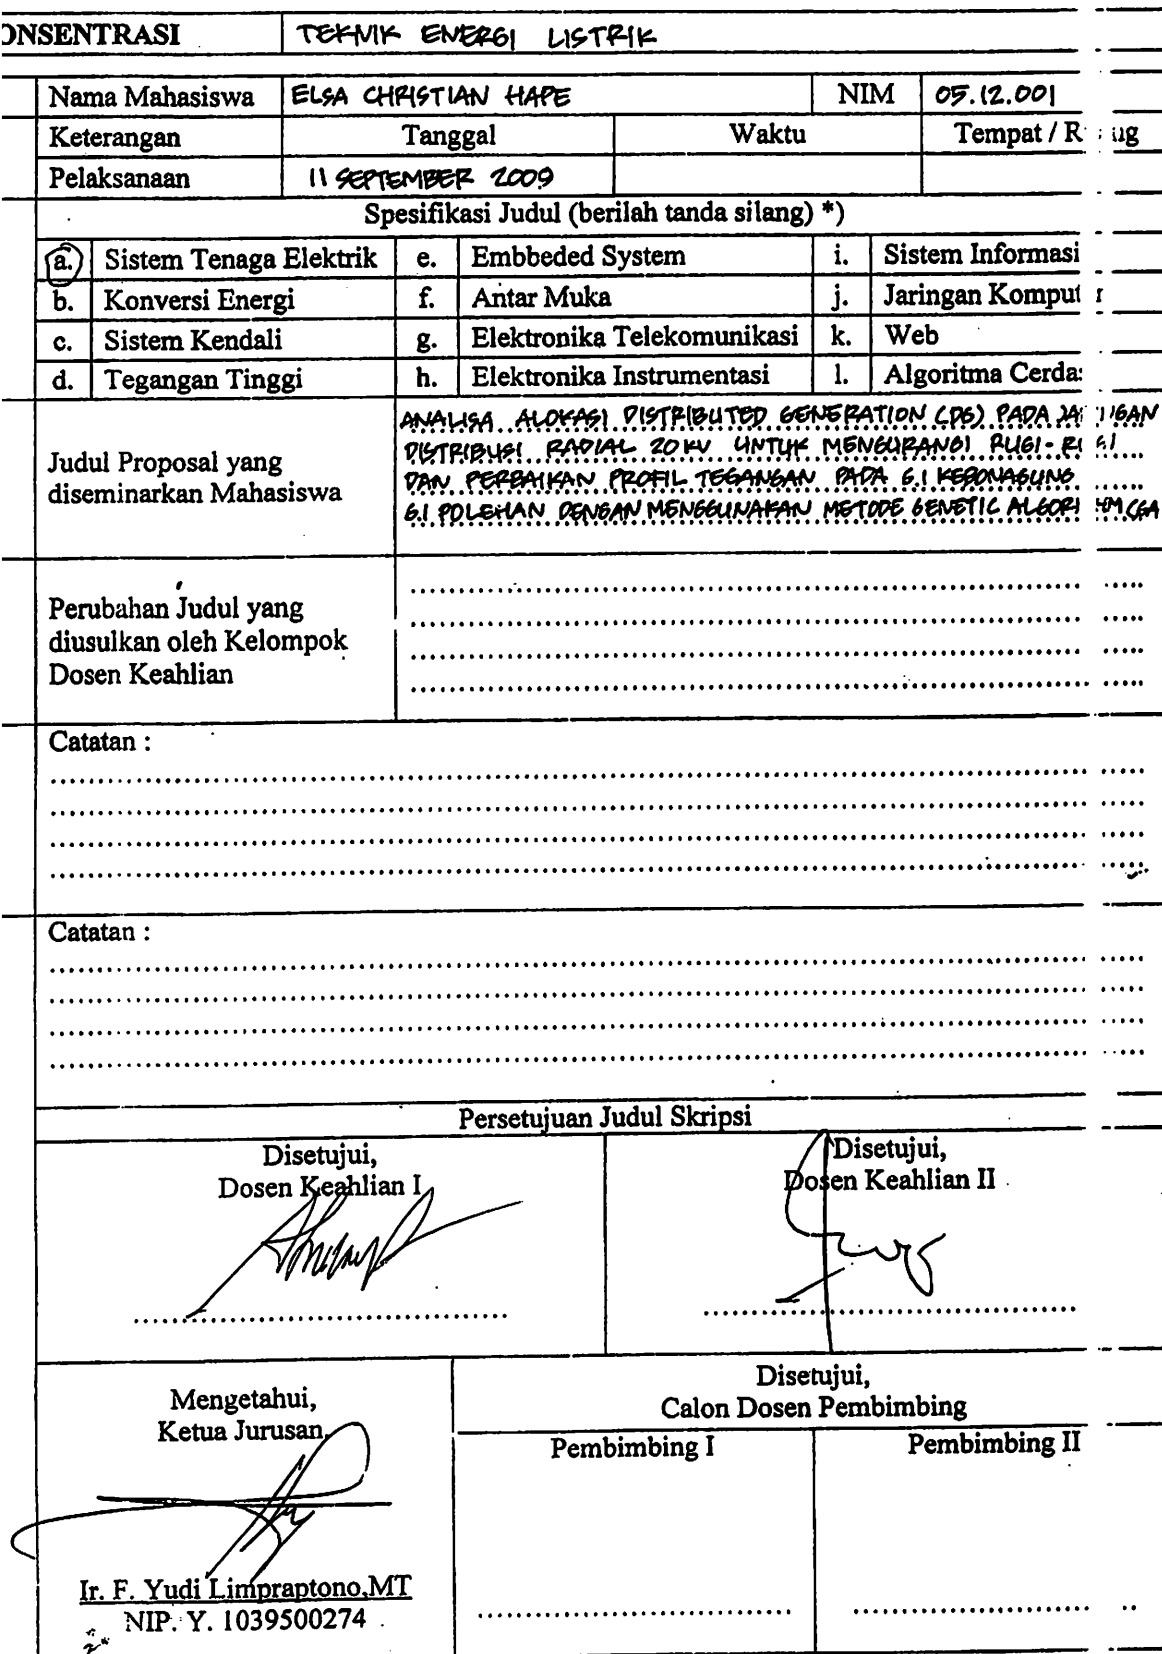 ONSENTRASI TEKNIK ENERGI LISTRIK
Nama Mahasiswa ELSA CHRISTIAN HAPE NIM 05.12.001
Keterangan Tanggal Waktu Tempat / R ug
Pelaksanaan 11 SEPTEMBER 2009
Spesifikasi Judul (berilah tanda silang) *)
a. Sistem Tenaga Elektrik e. Embbeded System i. Sistem Informasi
b. Konversi Energi f. Antar Muka j. Jaringan Komput r
c. Sistem Kendali g. Elektronika Telekomunikasi k. Web
d. Tegangan Tinggi h. Elektronika Instrumentasi l. Algoritma Cerda
Judul Proposal yang diseminarkan Mahasiswa
ANALISA ALOKASI DISTRIBUTED GENERATION (DG) PADA JA IGAN
DISTRIBUSI RADIAL 20 KV UNTUK MENGURANGI RUGI-R GI
DAN PERBAIKAN PROFIL TEGANGAN PADA G.I KEBONAGUNG
G.I POLEHAN DENGAN MENGGUNAKAN METODE GENETIC ALGORI HM (GA
Perubahan Judul yang
diusulkan oleh Kelompok
Dosen Keahlian
Catatan :
Catatan :
Persetujuan Judul Skripsi
Disetujui, Disetujui,
Dosen Keahlian I Dosen Keahlian II
Mengetahui, Disetujui,
Ketua Jurusan, Calon Dosen Pembimbing
Pembimbing I Pembimbing II
Ir. F. Yudi Limpraptono,MT
NIP. Y. 1039500274